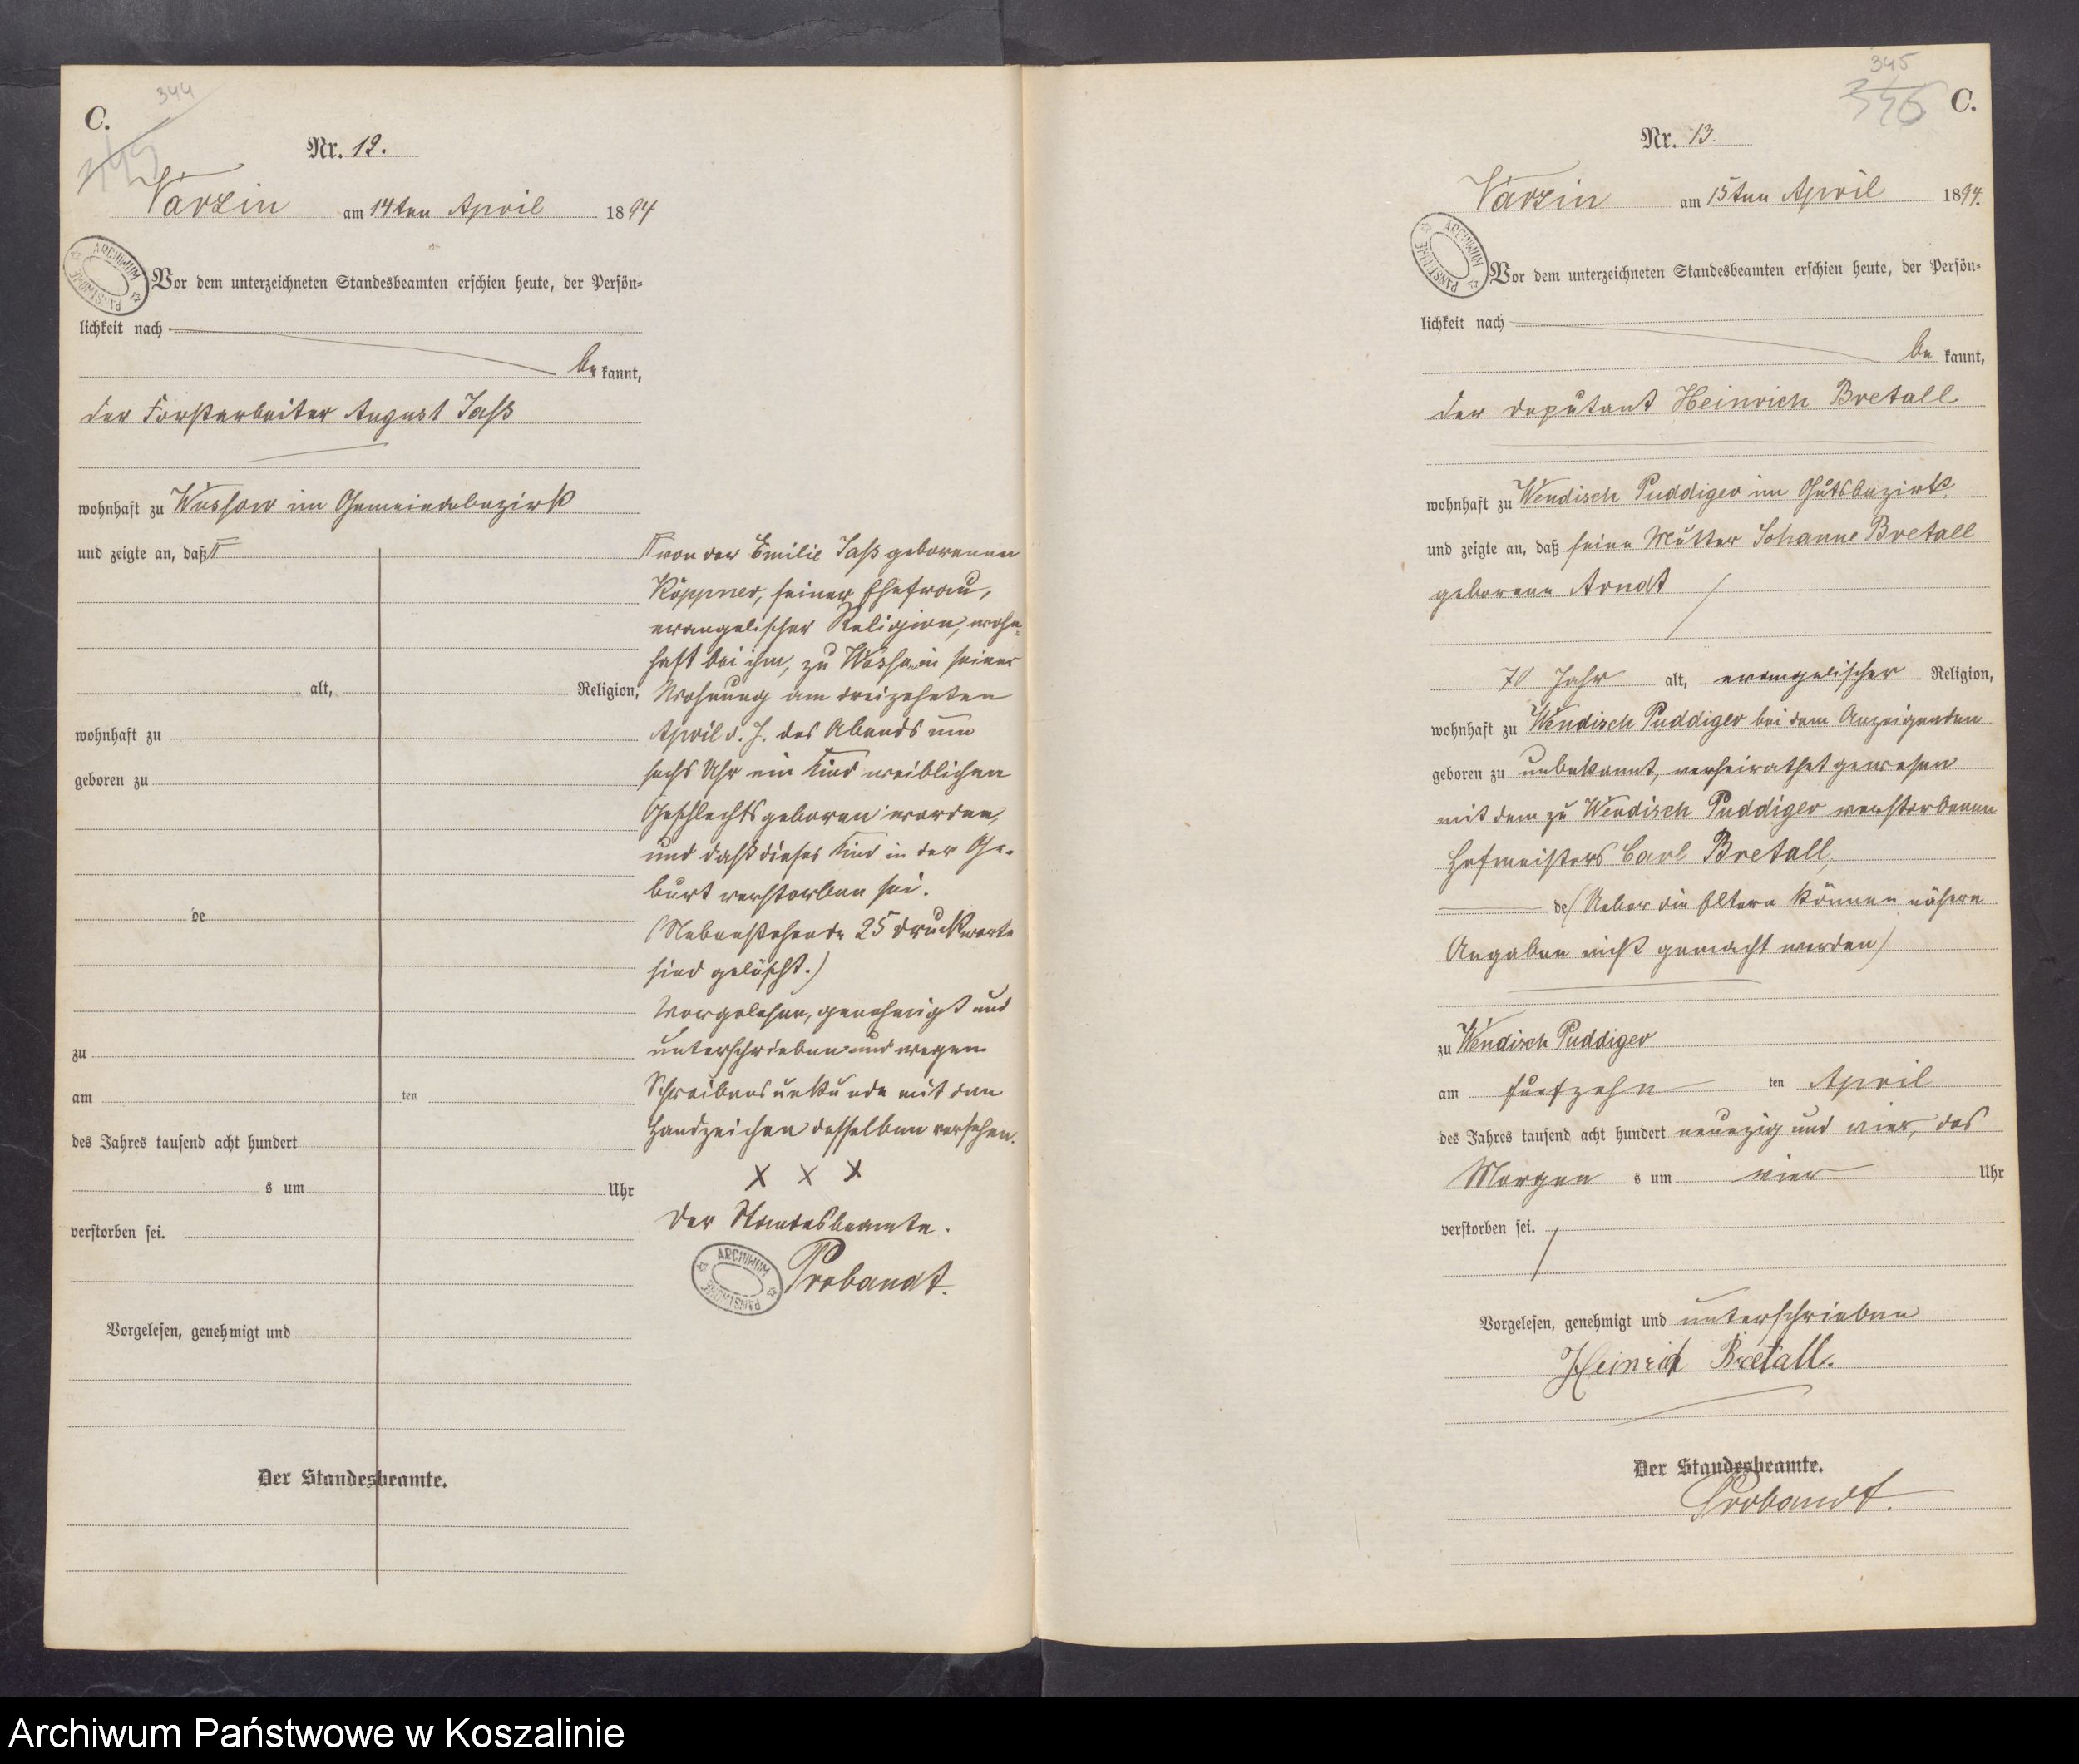 C.
344
Nr. 12.
Varzin am 14ten April 1894
ARCHIWUM PAŃSTWOWE
Vor dem unterzeichneten Standesbeamten erschien heute, der Persön-
lichkeit nach
be kannt,
der Forstarbeiter August Jaß
wohnhaft zu Wussow im Gemeindebezirk
und zeigte an, daß
alt, Religion,
wohnhaft zu
geboren zu
de
zu
am ten
des Jahres tausend acht hundert
s um Uhr
verstorben sei.
Vorgelesen, genehmigt und
Der Standesbeamte.
von der Emilie Jaß geborenen
Köppner, seiner Ehefrau,
evangelischer Religion, wohn-
haft bei ihm, zu Wussow in seiner
Wohnung am dreizehnten
April d. J. des Abends um
sechs Uhr ein Kind weiblichen
Geschlechts geboren worden,
und daß dieses Kind in der Ge-
burt verstorben sei.
(Nebenstehende 25 Druckworte
sind gelöscht.)
Vorgelesen, genehmigt und
unterschrieben und wegen
Schreibensunkunde mit dem
Handzeichen desselben versehen.
X X X
Der Standesbeamte.
ARCHIWUM PAŃSTWOWE
Probandt.
345
346
C.
Nr. 13.
Varzin am 15ten April 1894.
ARCHIWUM PAŃSTWOWE
Vor dem unterzeichneten Standesbeamten erschien heute, der Persön-
lichkeit nach
be kannt,
der Deputant Heinrich Bretall
wohnhaft zu Wendisch Puddiger im Gutsbezirk
und zeigte an, daß seine Mutter Johanne Bretall
geborene Arndt
70 Jahr alt, evangelischer Religion,
wohnhaft zu Wendisch Puddiger bei dem Anzeigenden
geboren zu unbekannt, verheirathet gewesen
mit dem zu Wendisch Puddiger verstorbenen
Hofmeisters Carl Bretall,
de (Ueber die Eltern können nähere
Angaben nicht gemacht werden)
zu Wendisch Puddiger
am fünfzehn ten April
des Jahres tausend acht hundert neunzig und vier, des
Morgen s um vier Uhr
verstorben sei.
Vorgelesen, genehmigt und unterschrieben
Heinrich Bretall.
Der Standesbeamte.
Probandt.
Archiwum Państwowe w Koszalinie